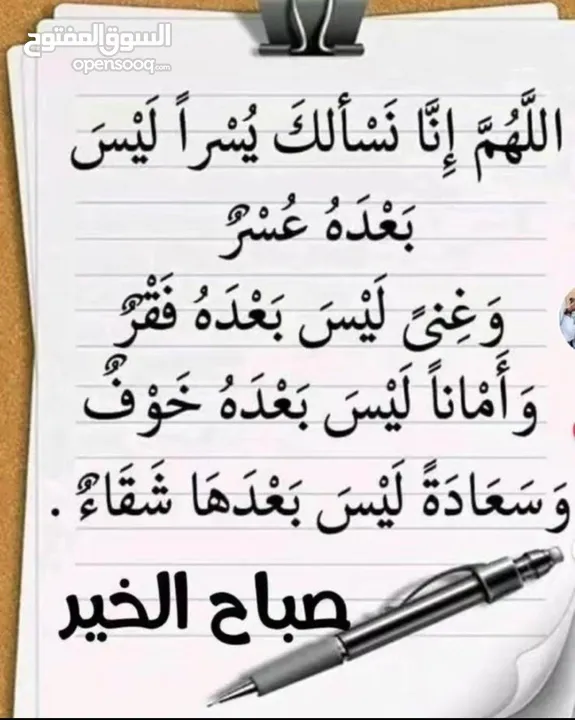 السوق المفتوح
opensooq.com
اللَّهُمَّ إِنَّا نَسْألكَ يُسْراً لَيْسَ
بَعْدَهُ عُسْرٌ
وَغِنىً لَيْسَ بَعْدَهُ فَقْرٌ
وَأَمْاناً لَيْسَ بَعْدَهُ خَوْفٌ
وَسَعَادَةً لَيْسَ بَعْدَهَا شَقَاءٌ .
صباح الخير